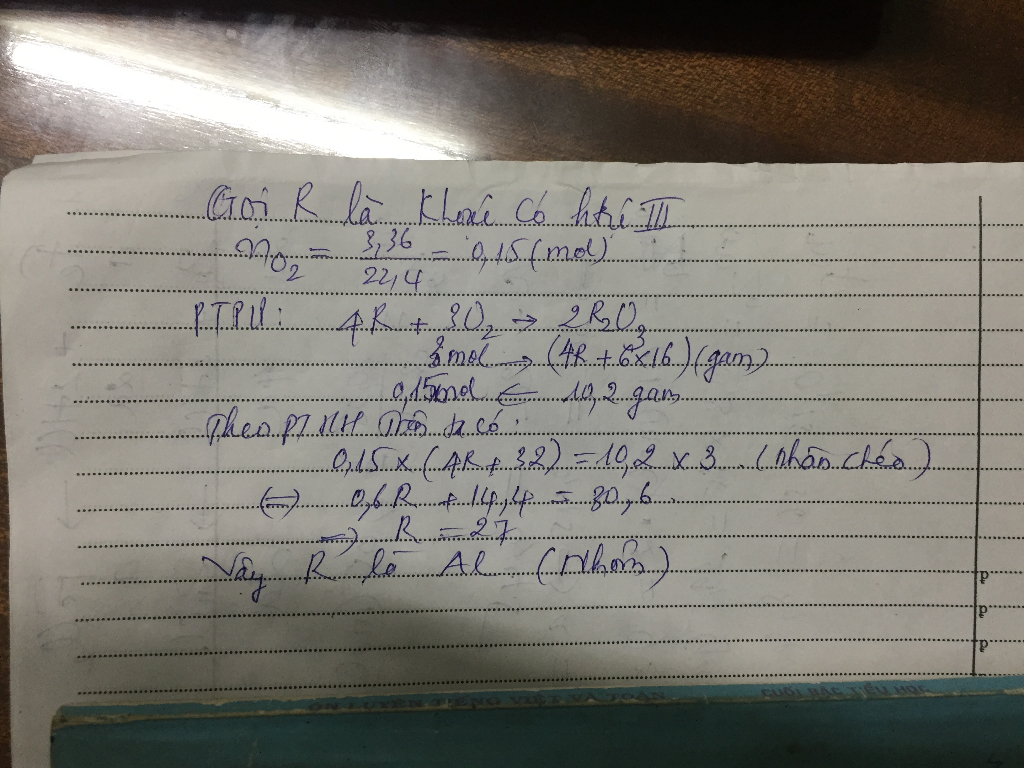 Gọi R là Khoá có htrị III
nO2 = 3,36/22,4 = 0,15 (mol)
PTPƯ: 4R + 3O2 → 2R2O3
3mol → (4R + 6×16) (gam)
0,15mol ← 10,2 gam
Theo PTHH Trên ta có:
0,15 × (4R + 32) = 10,2 × 3. (Nhân chéo)
⇔ 0,6R + 14,4 = 30,6.
⇒ R = 27
Vậy R là Al (Nhôm)